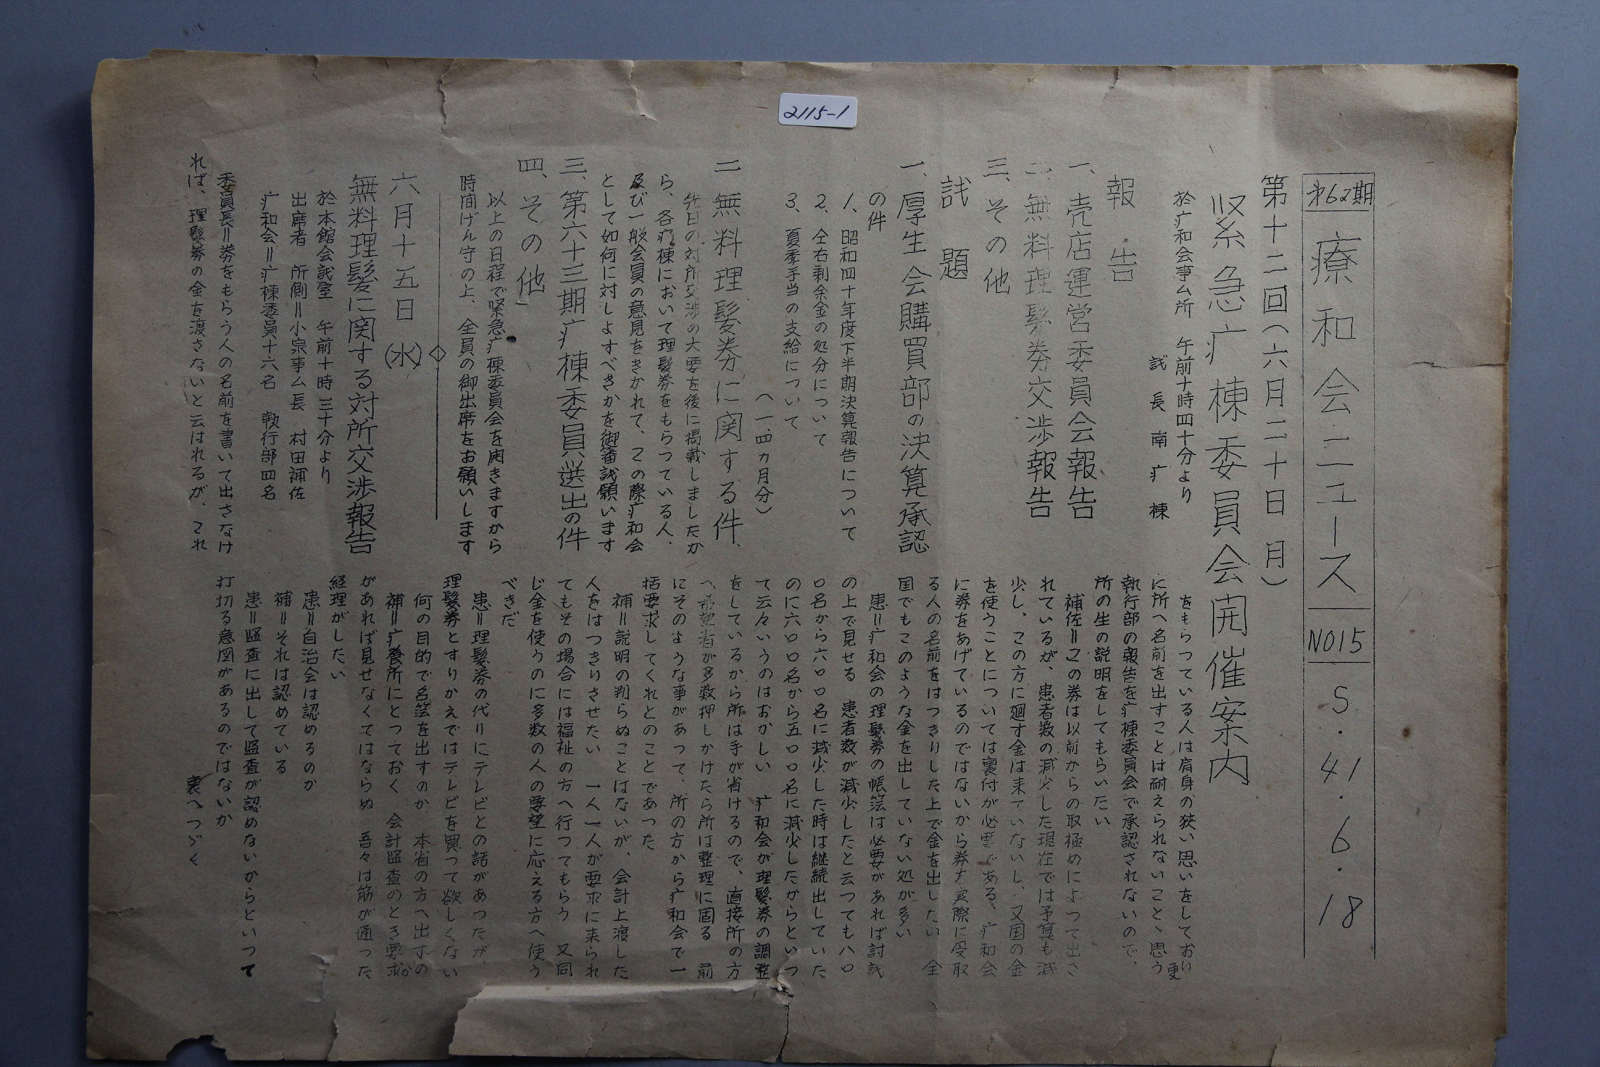 2115-1
才62期
療和会ニュース
NO15
S.41.6.18
第十二回(六月二十日 月)
緊急疒棟委員会開催案内
於疒和会事ム所 午前十時四十分より
試長 南疒棟
報告
一、売店運営委員会報告
二、無料理髪券交渉報告
三、その他
試題
一、厚生会購買部の決算承認
の件
(一、四ヵ月分)
1、昭和四十年度下半期決算報告について
2、仝右剰余金の処分について
3、夏季手当の支給について
二 無料理髪券に関する件、
先日の対所交渉の大要を後に掲載しましたか
ら、各疒棟において理髪券をもらつている人、
及び一般会員の意見をきかれて、この際疒和会
として如何に対しよすべきかを御審試願います
三、第六十三期疒棟委員選出の件
四、その他
以上の日程で緊急疒棟委員会を開きますから
時間げん守の上、全員の御出席をお願いします
◇
六月十五日(水)
無料理髪に関する対所交渉報告
於本館会試室 午前十時三十分より
出席者 所側=小泉事ム長 村田補佐
疒和会=疒棟委員十六名 執行部四名
委員長=券をもらう人の名前を書いて出さなけ
れば、理髪券の金を渡さないと云はれるが、これ
をもらつている人は肩身の狭い思いをしており
に所へ名前を出すことは耐えられないことゝ思う
更
執行部の報告を疒棟委員会で承認されないので、
所の生の説明をしてもらいたい
補佐=この券は以前からの取極めによつて出さ
れているが、患者数の減少した現在では予算も減
少し、この方に廻す金は来ていないし、又国の金
を使うことについては裏付が必要である、疒和会
に券をあげているのではないから券を実際に受取
る人の名前をはつきりした上で金を出したい 全
国でもこのような金を出していない処が多い
患=疒和会の理髪券の帳簿は必要があれば討試
の上で見せる 患者数が減少したと云つても八〇
〇名から六〇〇名に減少した時は継続出していた
のに六〇〇名から五〇〇名に減少したからといつ
て云々いうのはおかしい 疒和会が理髪券の調整
をしているから所は手が省けるので、直接所の方
へ希望者が多数押しかけたら所は整理に困る 前
にそのような事があつて、所の方から疒和会で一
括要求してくれとのことであつた
補=説明の判らぬことはないが、会計上渡した
人をはつきりさせたい 一人一人が要求に来られ
てもその場合には福祉の方へ行つてもらう 又同
じ金を使うのに多数の人の要望に応える方へ使う
べきだ
患=理髪券の代りにテレビとの話があつたが
理髪券とすりかえではテレビを買つて欲しくない
何の目的で名簿を出すのか 本省の方へ出すの
か
補=疒養所にとつておく 会計監査のとき要求
があれば見せなくてはならぬ 吾々は筋が通つた
経理がしたい
患=自治会は認めるのか
補=それは認めている
患=監査に出して監査が認めないからといつて
打切る意図があるのではないか
裏へつゞく